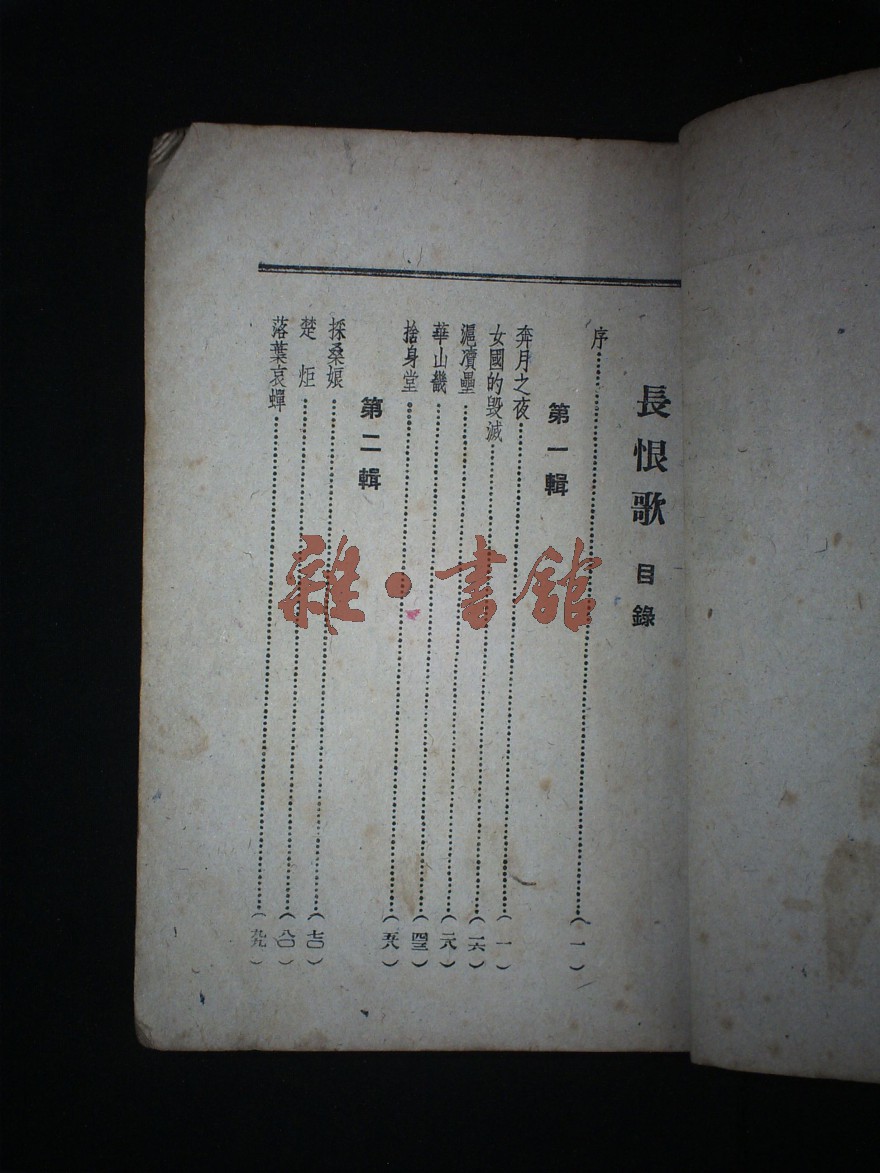 長恨歌 目錄
序……(一)
第一輯
奔月之夜……(一)
女國的毀滅……(一六)
滬瀆壘……(二八)
華山畿……(四三)
捨身堂……(五八)
第二輯
採桑娘……(七〇)
楚炬……(八〇)
落葉哀蟬……(九九)
雜·書館